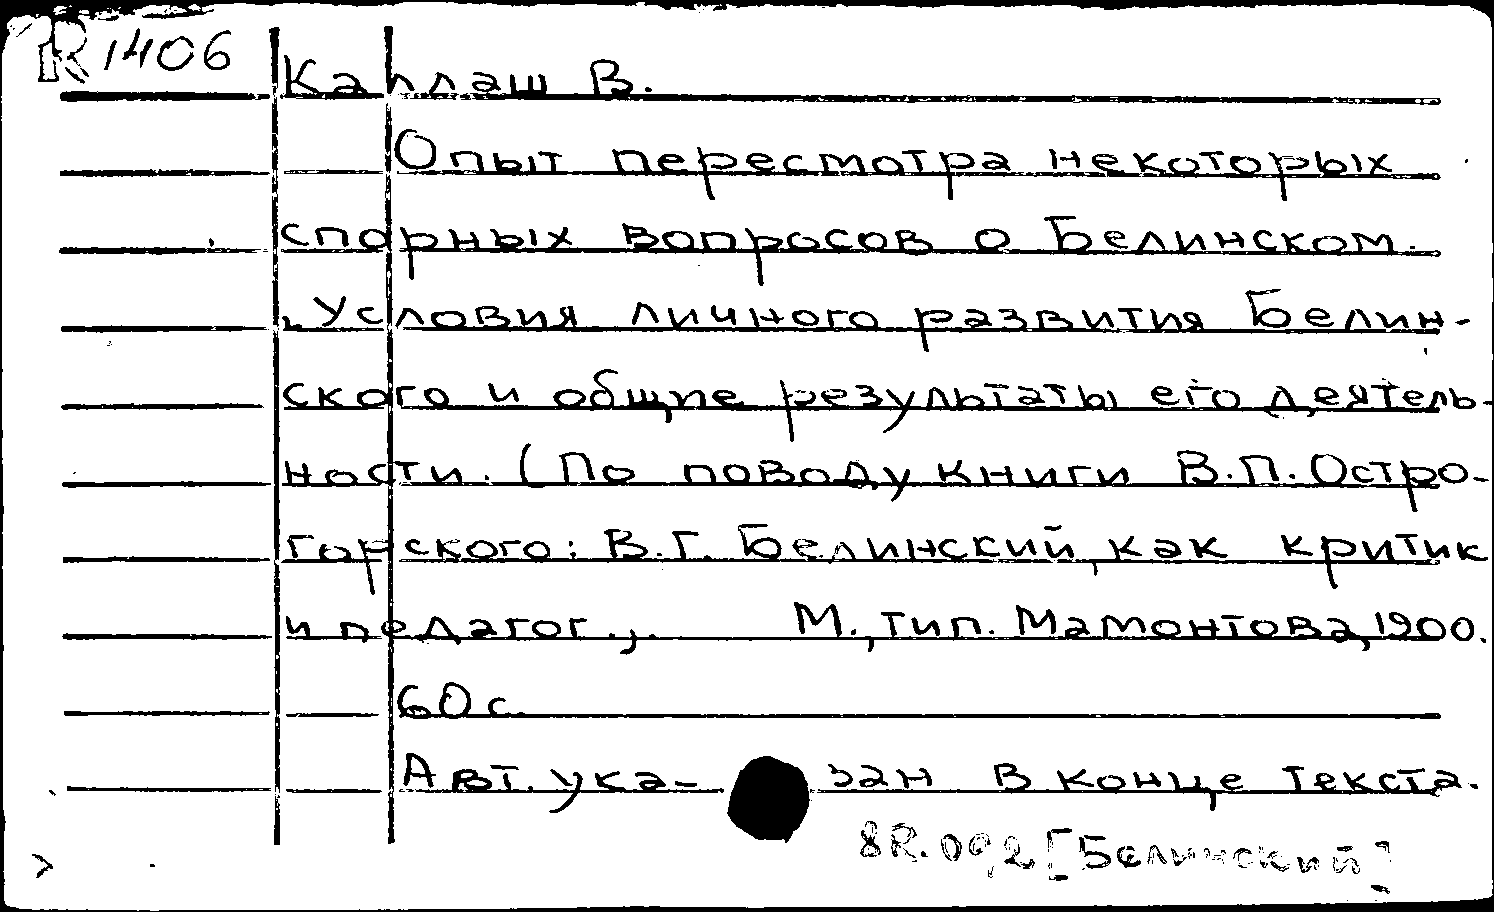 R 1406
Каллаш В.
Опыт пересмотра некоторых
спорных вопросов о Белинском.
„Условия личного развития Белин-
ского и общие результаты его деятель-
ности. (По поводу книги В.П. Остро-
горского: В.Г. Белинский, как критик
и педагог.,. М., тип. Мамонтова, 1900.
60 с.
Авт. ука- зан в конце текста.
8R.092 [Белинский]